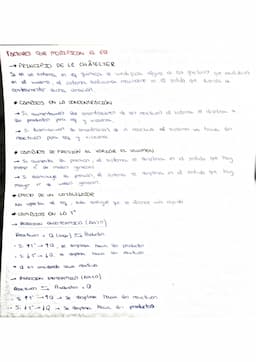 FACTORES QUE MODIFICAN EL EQ
→ PRINCIPIO DE LE CHÂTELIER
Si en un sistema en eq químico se modifica alguno de los factores que
en el mismo, el sistema evoluciona en el sentido que tiende a
esta variación.
• CAMBIOS EN LA CONCENTRACIÓN
→ Si aumentamos la de un reactivo el sistema se desplaza a
los productos para eq y viceversa.
→ Si disminuimos la de el sistema se hacia los
reactivos para eq y viceversa.
• CAMBIOS DE PRESIÓN AL VARIAR EL VOLUMEN
→ Si aumenta la presión el sistema se desplaza en el sentido que hay
menor nº de moles gaseosos
→ Si disminuye la presión, el sistema se desplaza en el sentido que hay
mayor nº de moles gaseosos.
• EFECTO DE UN CATALIZADOR
No afecta al eq, que se alcance más rápido
• CAMBIOS EN LA Tª
→ REACCIÓN ENDOTÉRMICA (ΔH>0)
Reactivos + Q ⇆ Productos
- Si ↑Tª → ↑Q, se desplaza hacia los productos
- Si ↓Tª → ↓Q se desplaza hacia los reactivos
→ REACCIÓN EXOTÉRMICA (ΔH<0)
Reactivos ⇆ Productos + Q
- Si ↑Tª → ↑Q → Se desplaza hacia los reactivos
- Si ↓Tª → ↓Q → Se desplaza hacia los productos